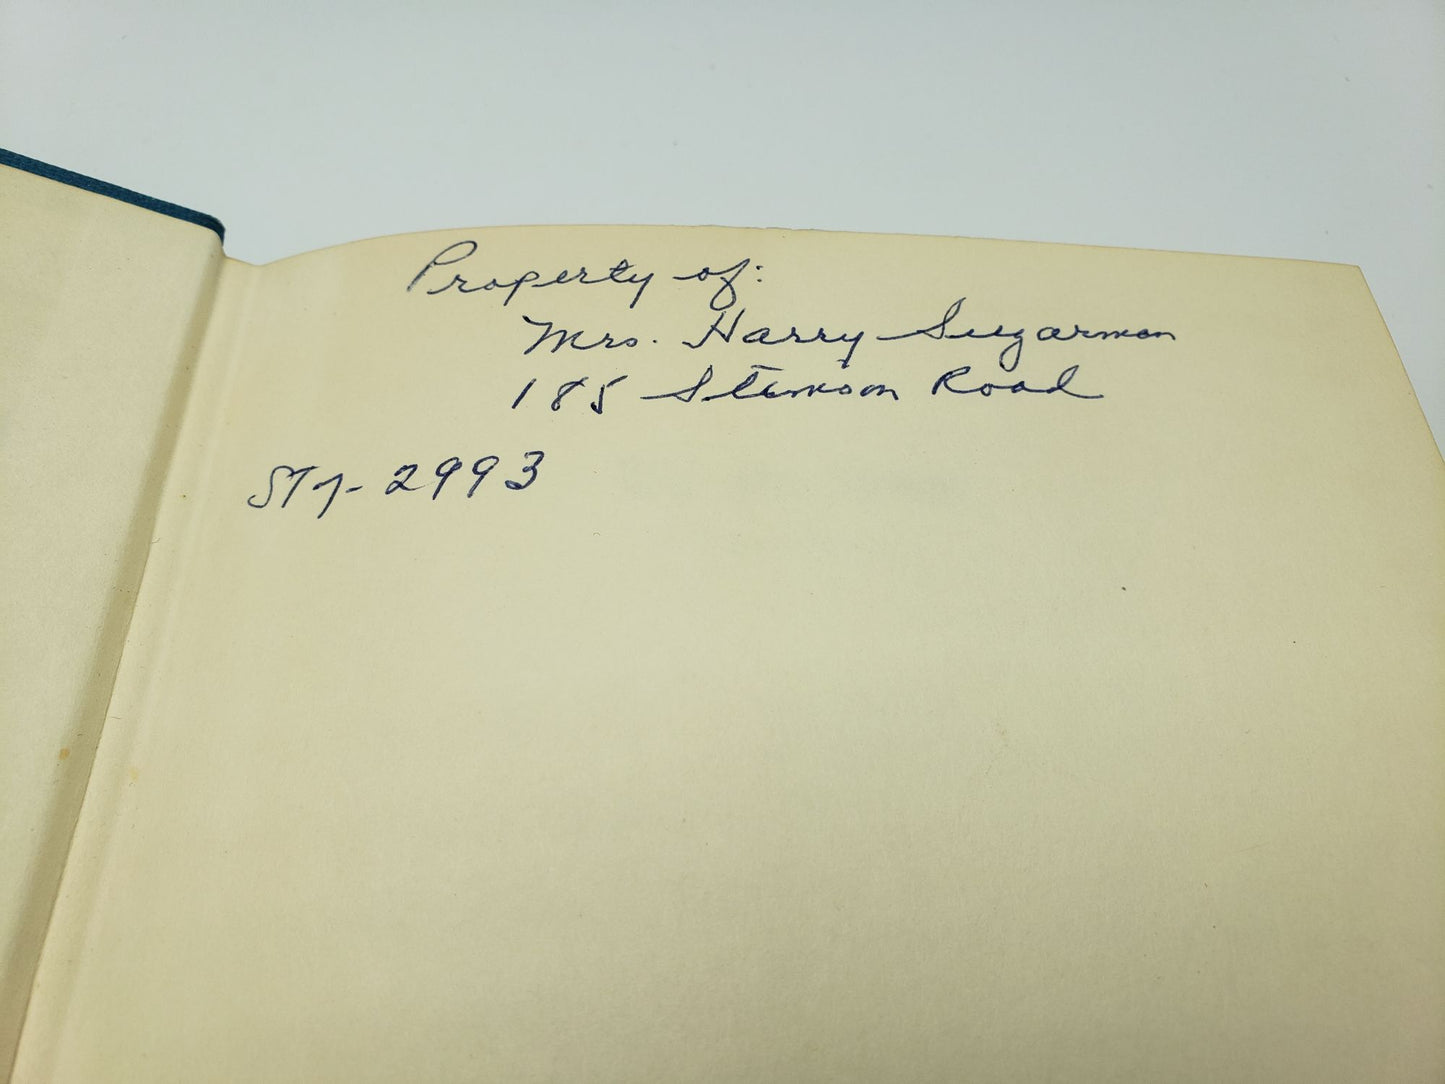 Property of:
Mrs. Harry Sugarman
185 Stimson Road
ST7-2993